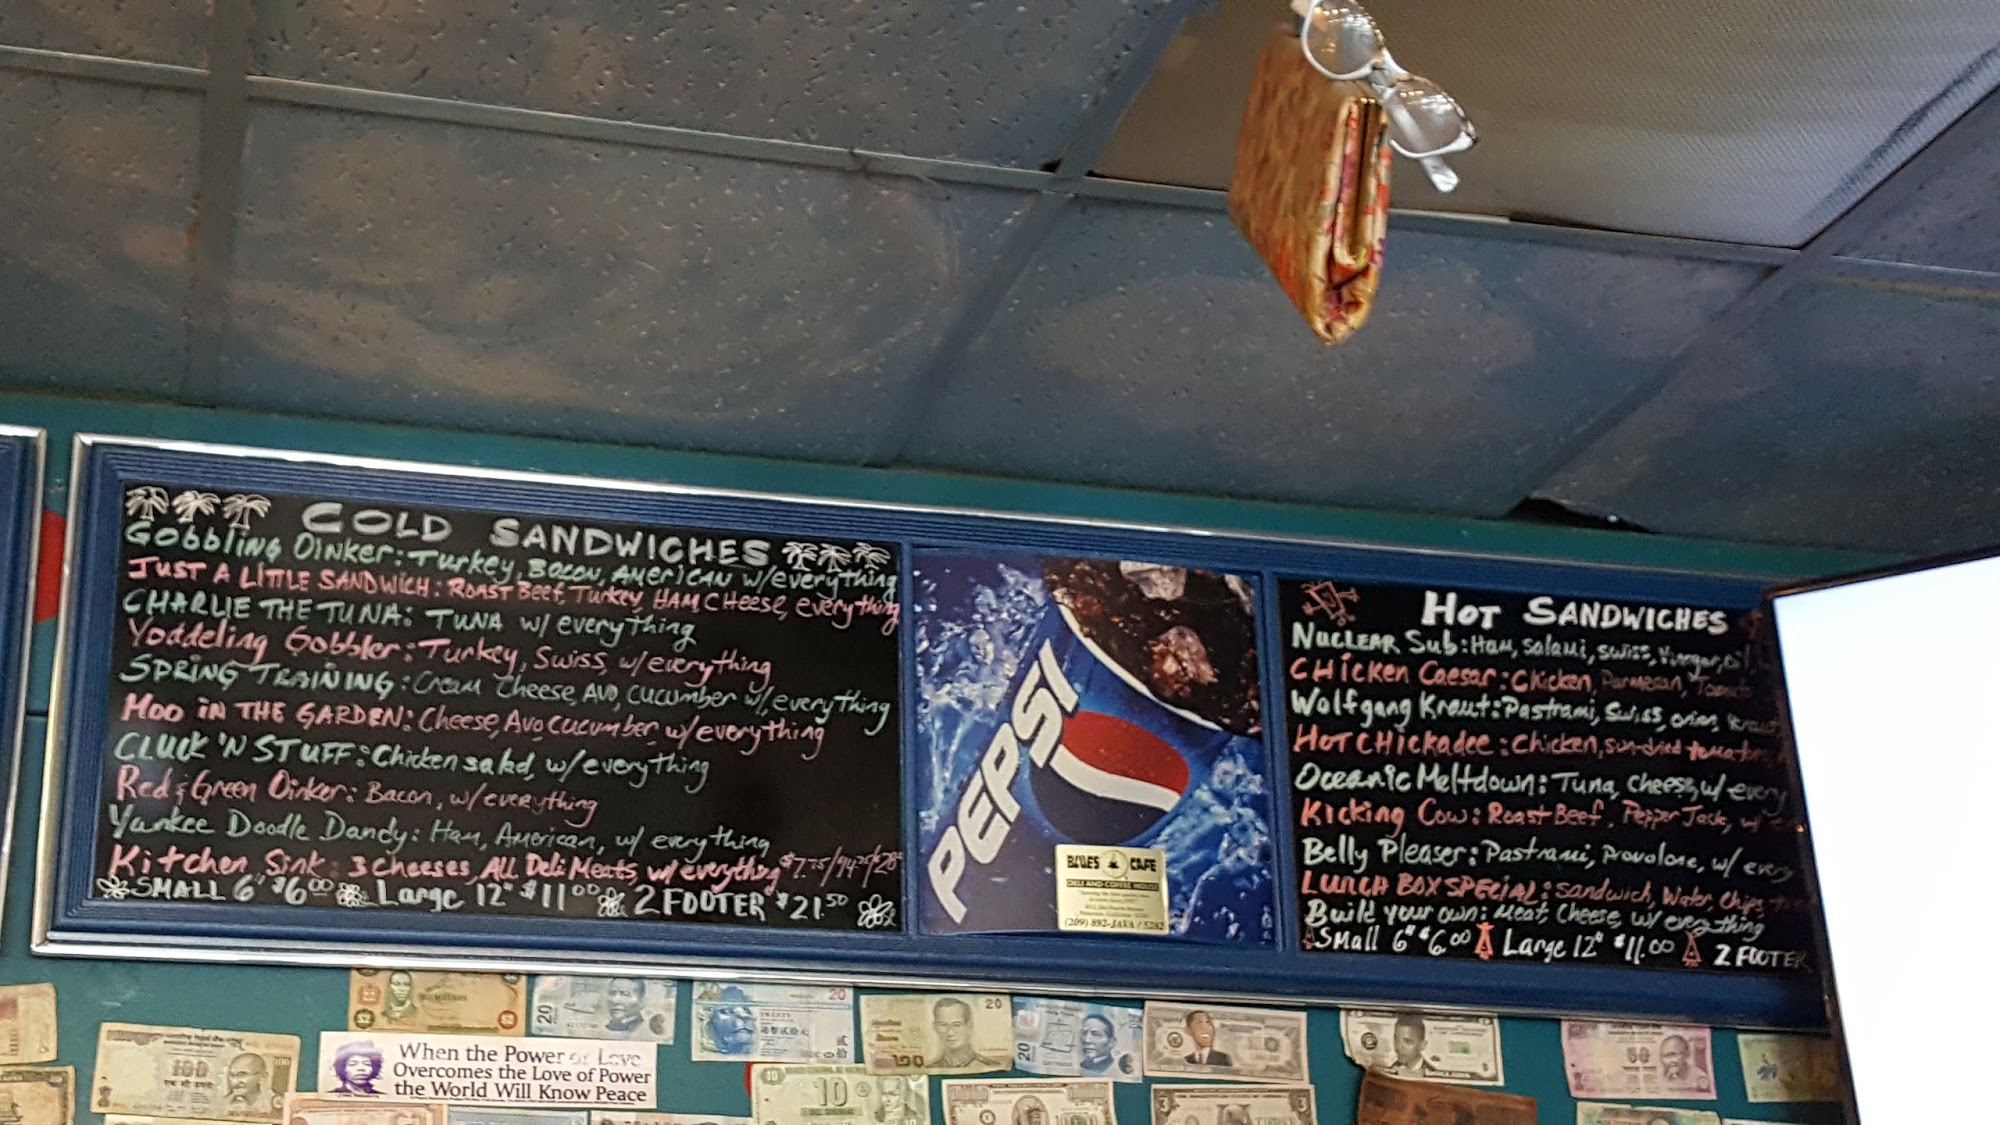 COLD SANDWICHES
Gobbling Oinker: Turkey, Bacon, American w/everything
JUST A LITTLE SANDWICH: Roast Beef, Turkey, HAM CHeese, everything
CHARLIE THE TUNA: TUNA w/ everything
Yoddeling Gobbler: Turkey, Swiss, w/everything
SPRING TRAINING: Cream Cheese, Avo, cucumber w/everything
MOO iN THE GARDEN: Cheese, Avo cucumber, w/everything
CLUCK 'N STUFF: Chicken salad, w/everything
Red & Green Oinker: Bacon, w/everything
Yankee Doodle Dandy: Ham, American, w/ everything
Kitchen Sink: 3 cheeses, ALL Deli Meats, w/everything
SMALL 6" $6.00 Large 12" $11.00 2 FOOTER $21.50
PEPSI
BLUES CAFE
DELI AND COFFEE HOUSE
(209) 892-JAVA / 5282
HOT SANDWICHES
NUCLEAR Sub: Ham, Salami, Swiss,
CHicken Caesar: Chicken, Parmesan,
Wolfgang Kraut: Pastrami, Swiss, onion, Kraut
HOT CHickadee: Chicken, sun-dried tomatoes
Oceanic Meltdown: Tuna, cheese, w/ every
Kicking Cow: Roast Beef, Pepper Jack, w/
Belly Pleaser: Pastrami, Provolone, w/ every
LUNCH BOX SPECIAL: Sandwich, Water, Chips
Build your own: Meat, Cheese, w/ everything
Small 6" $6.00 Large 12" $11.00 2 FOOTER
When the Power of Love
Overcomes the Love of Power
the World Will Know Peace
100
20
20
TWENTY
20
100
20
50
10
3